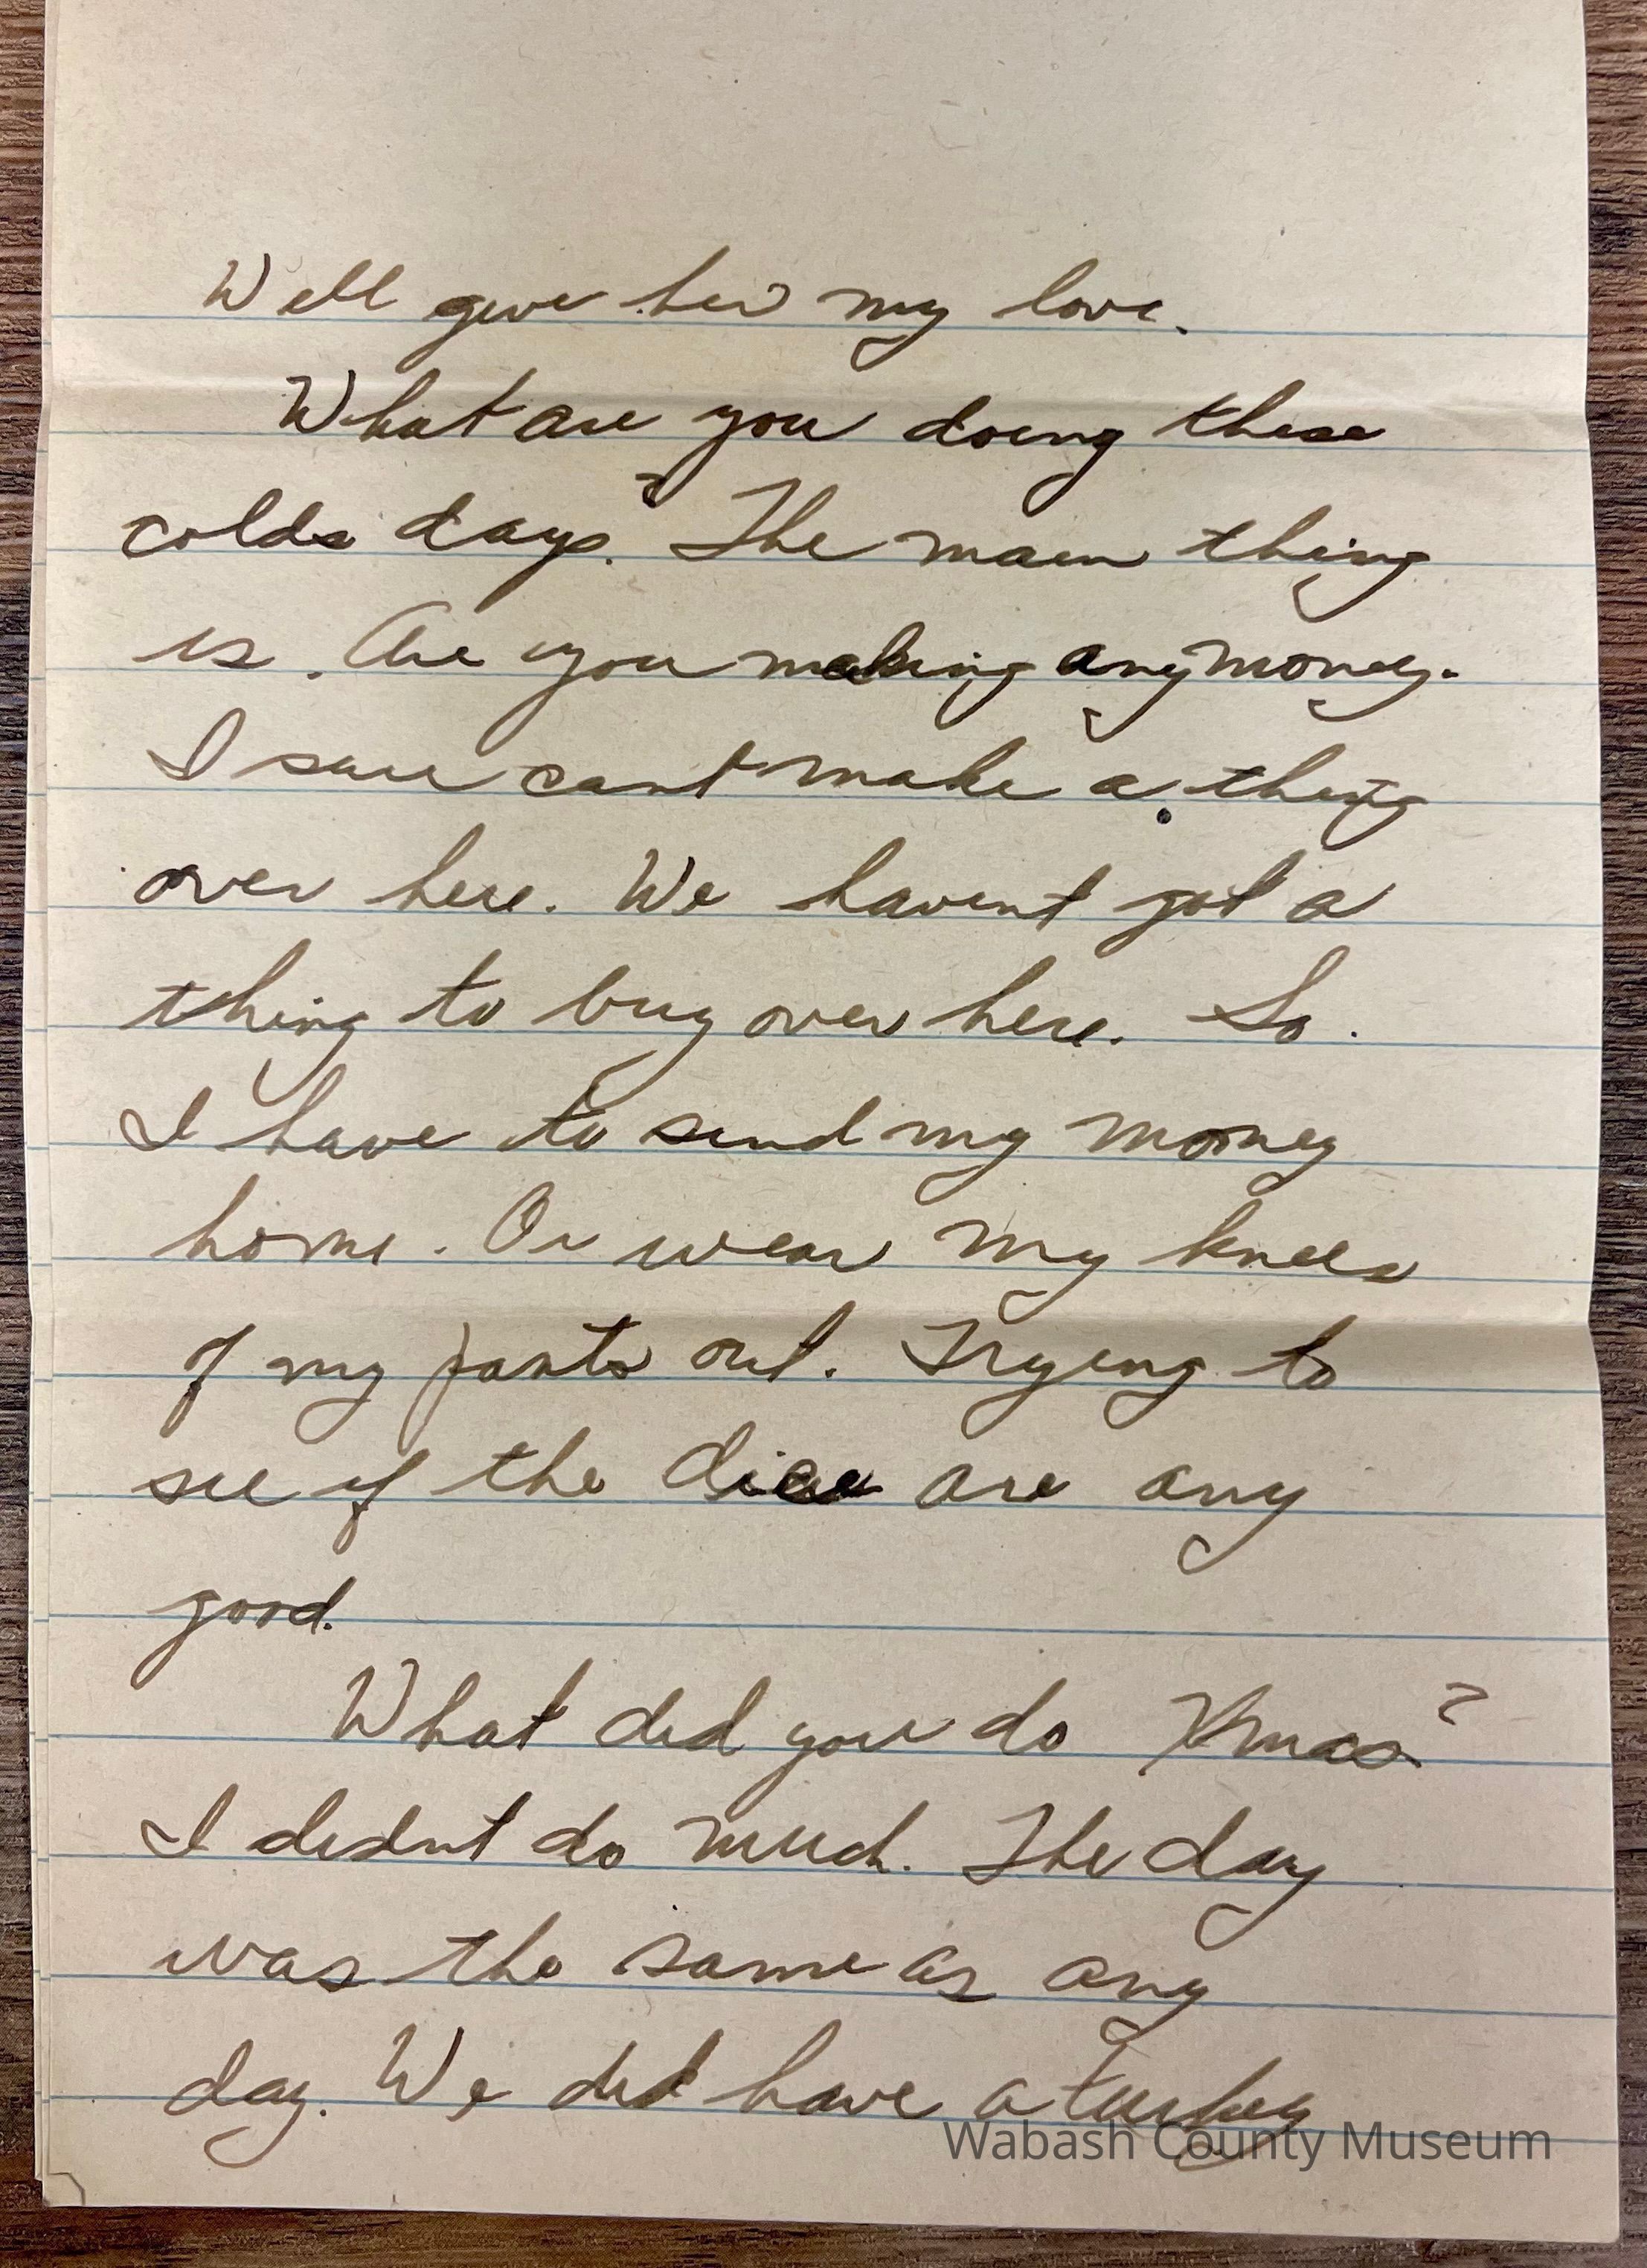 Well give her my love.
What are you doing these
colds days? The main thing
is. Are you making any money.
I sure cant make a thing
over here. We havent got a
thing to buy over here. So.
I have to send my money
home. Or wear my knees
of my pants out. Trying to
see if the dice are any
good.
What did you do Xmas?
I didnt do much. The day
was the same as any
day. We did have a turkey
Wabash County Museum